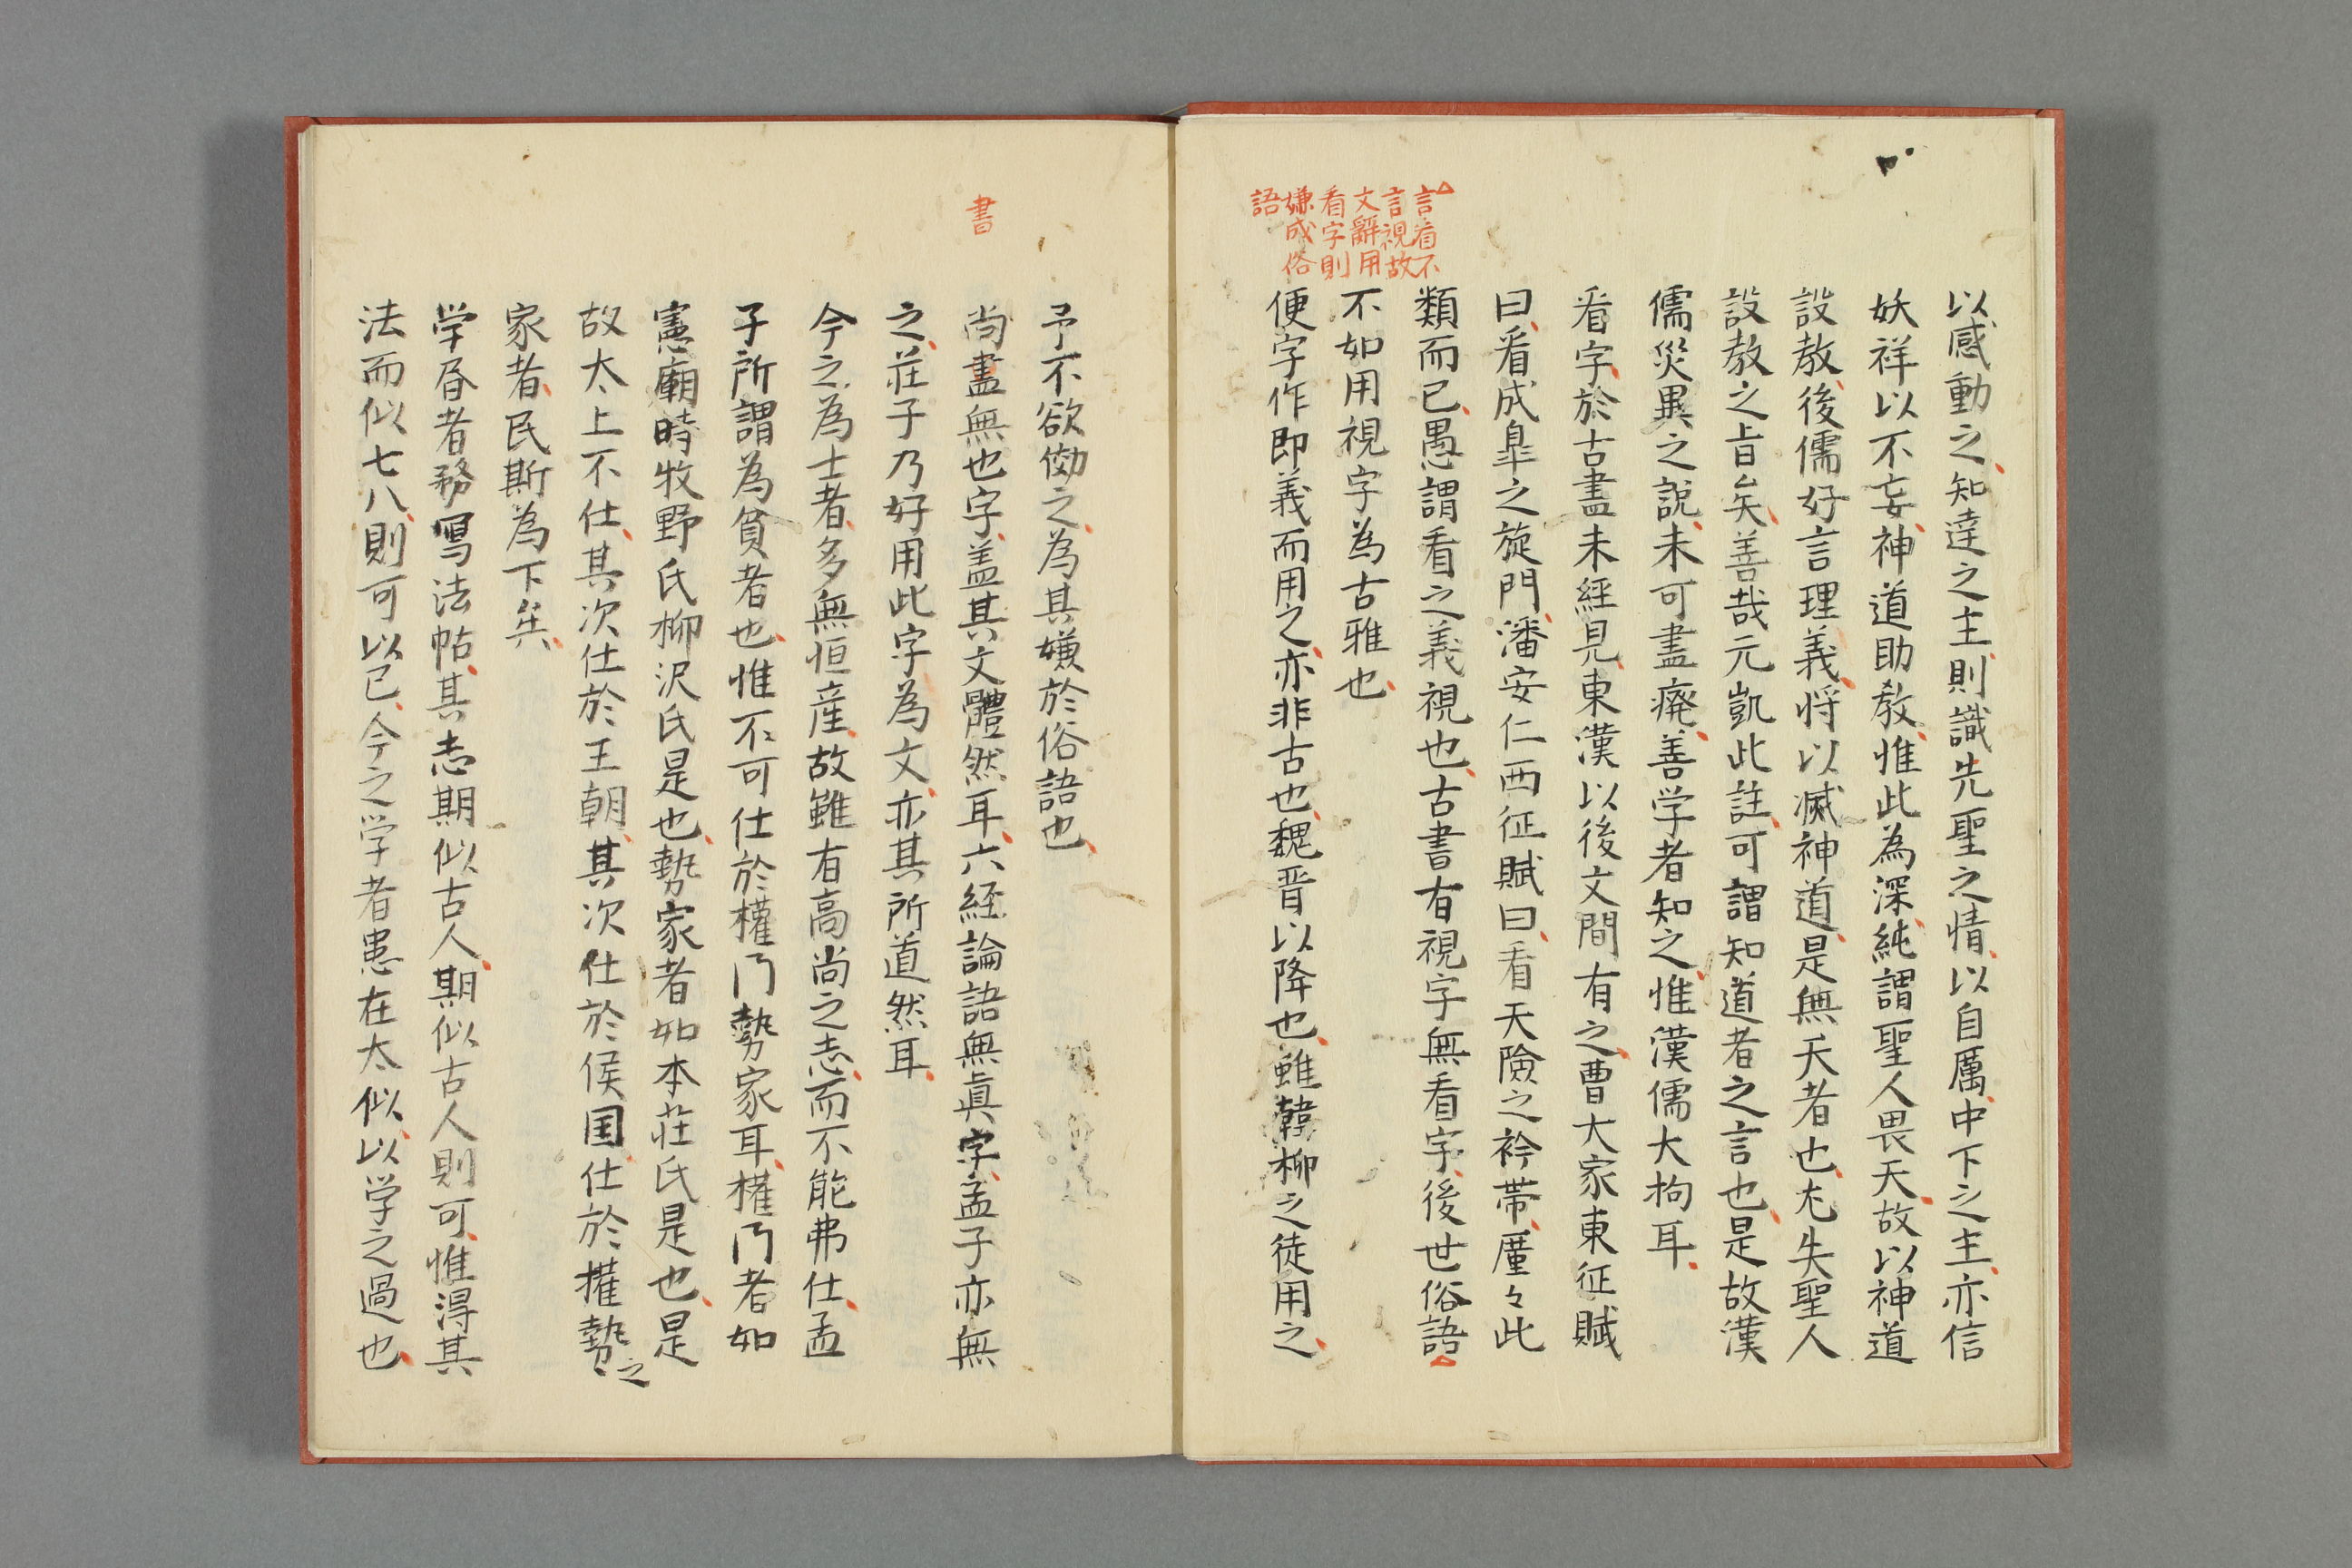 以感動之知達之主則識先聖之情以自厲中下之主亦信
妖祥以不妄神道助教惟此為深純謂聖人畏天故以神道
設教後儒好言理義将以滅神道是無天者也尤失聖人
設教之旨矣善哉元凱此註可謂知道者之言也是故漢
儒災異之説未可盡廃善学者知之惟漢儒大拘耳
看字於古書未經見東漢以後文間有之曹大家東征賦
曰看成皐之旋門潘安仁西征賦曰看天險之衿帯厪々此
類而已愚謂看之義視也古書有視字無看字後世俗語
言看不
言視故
文辭用
看字則
嫌成俗
語
不如用視字為古雅也
便字作即義而用之亦非古也魏晋以降也雖韓柳之徒用之
予不欲傚之為其嫌於俗語也
書
尚盡無也字盖其文體然耳六経論語無眞字孟子亦無
之荘子乃好用此字為文亦其所道然耳
今之為士者多無恒産故雖有高尚之志而不能弗仕孟
子所謂為貧者也惟不可仕於權门勢家耳權门者如
憲廟時牧野氏柳沢氏是也勢家者如本荘氏是也是
故太上不仕其次仕於王朝其次仕於侯国仕於權勢之
家者民斯為下矣
学書者務写法帖其志期似古人期似古人則可惟得其
法而似七八則可以已今之学者患在太似以学之過也